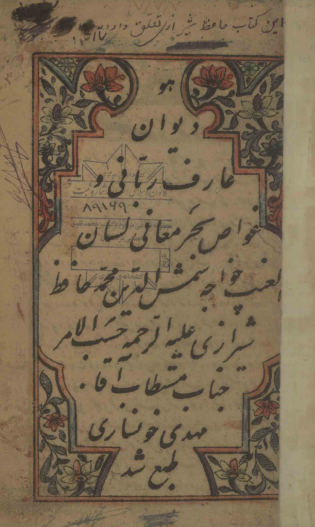 این کتاب حافظ شیرازی تعلق دارد
هو
دیوان
عارف ربانی و
غواص بحر معانی لسان
الغیب خواجه شمس الدین محمد حافظ
شیرازی علیه الرحمه حسب الامر
جناب مستطاب آقا
مهدی خونساری
طبع شد
۸۹۱۶۹